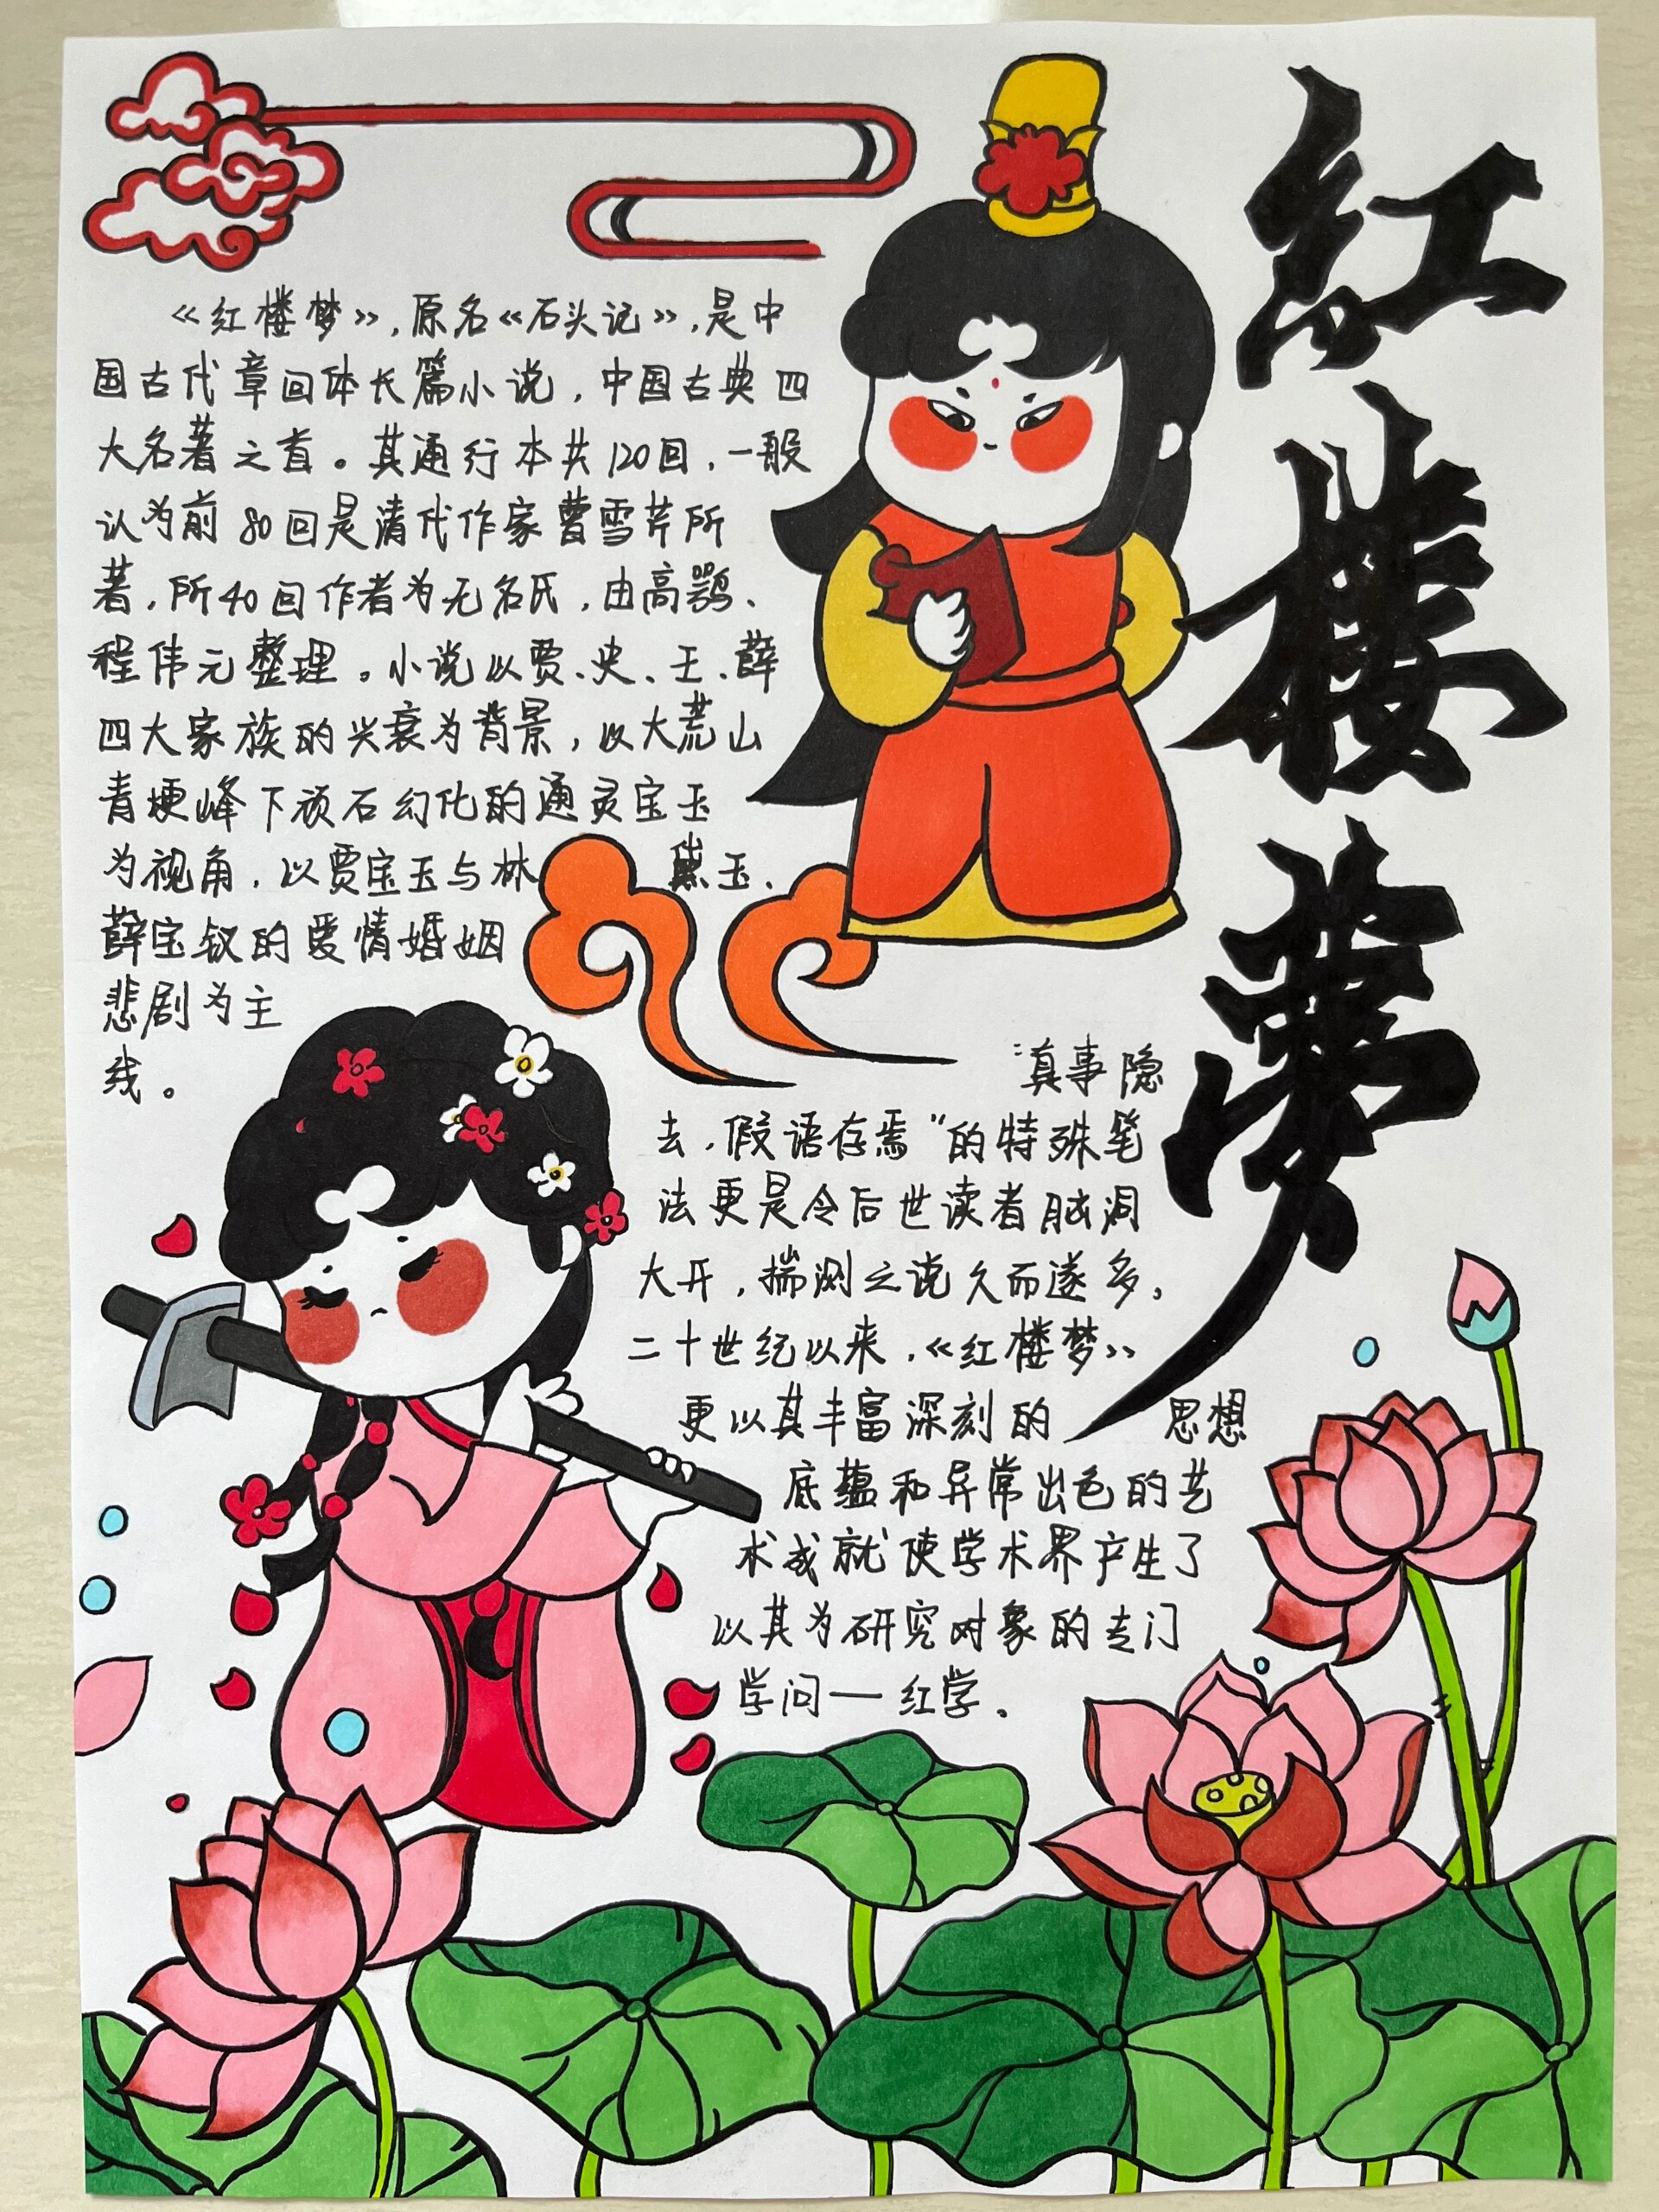 红楼梦
《红楼梦》,原名《石头记》,是中
国古代章回体长篇小说,中国古典四
大名著之首。其通行本共120回,一般
认为前80回是清代作家曹雪芹所
著,所40回作者为无名氏,由高鹗、
程伟元整理。小说以贾、史、王、薛
四大家族的兴衰为背景,以大荒山
青埂峰下顽石幻化的通灵宝玉
为视角,以贾宝玉与林黛玉、
薛宝钗的爱情婚姻
悲剧为主
线。
“真事隐
去,假语存焉”的特殊笔
法更是令后世读者脑洞
大开,揣测之说久而遂多。
二十世纪以来,《红楼梦》
更以其丰富深刻的思想
底蕴和异常出色的艺
术成就使学术界产生了
以其为研究对象的专门
学问—红学。